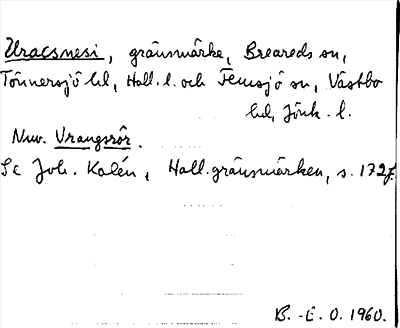 Uracsnesi, gränsmärke, Breareds sn,
Tönnersjö hd, Hall. l. och Femsjö sn, Västbo
hd, Jönk. l.
Nuv. Vrangsrör.
Se Joh. Kalén, Hall. gränsmärken, s. 172f.
B.-E. O. 1960.